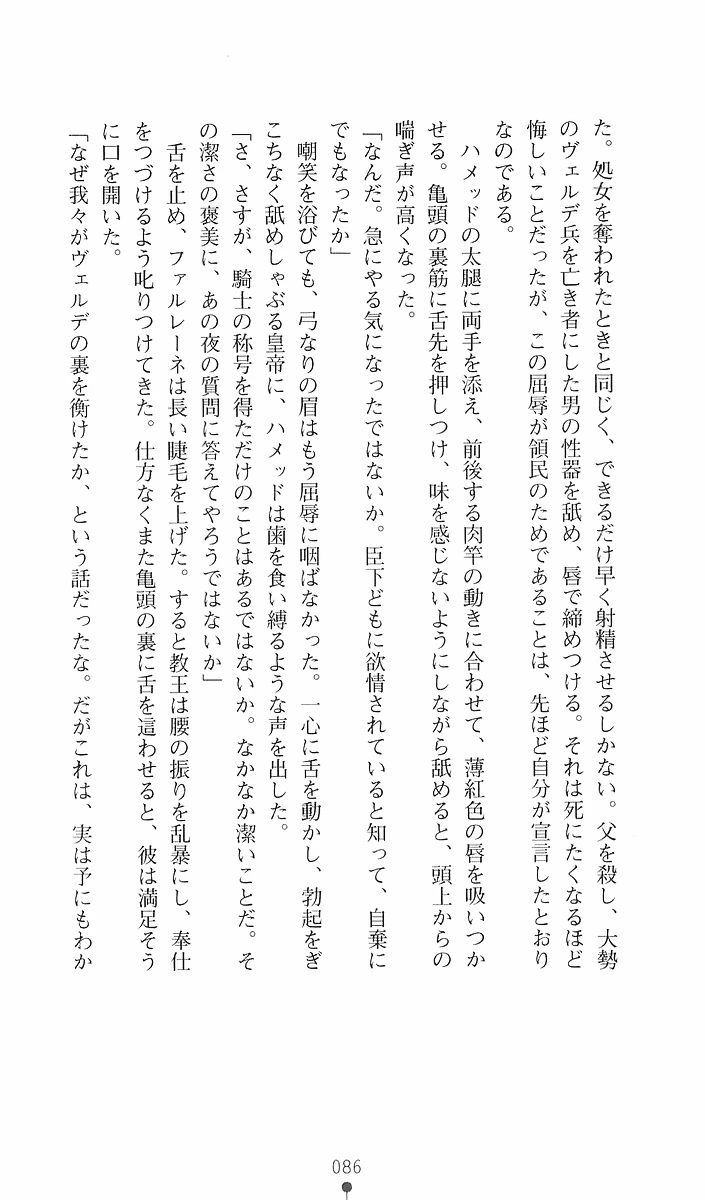 た。処女を奪われたときと同じく、できるだけ早く射精させるしかない。父を殺し、大勢
のヴェルデ兵を亡き者にした男の性器を舐め、唇で締めつける。それは死にたくなるほど
悔しいことだったが、この屈辱が領民のためであることは、先ほど自分が宣言したとおり
なのである。
　ハメッドの太腿に両手を添え、前後する肉竿の動きに合わせて、薄紅色の唇を吸いつか
せる。亀頭の裏筋に舌先を押しつけ、味を感じないようにしながら舐めると、頭上からの
喘ぎ声が高くなった。
「なんだ。急にやる気になったではないか。臣下どもに欲情されていると知って、自棄に
でもなったか」
　嘲笑を浴びても、弓なりの眉はもう屈辱に咽ばなかった。一心に舌を動かし、勃起をぎ
こちなく舐めしゃぶる皇帝に、ハメッドは歯を食い縛るような声を出した。
「さ、さすが、騎士の称号を得ただけのことはあるではないか。なかなか潔いことだ。そ
の潔さの褒美に、あの夜の質問に答えてやろうではないか」
　舌を止め、ファルレーネは長い睫毛を上げた。すると教王は腰の振りを乱暴にし、奉仕
をつづけるよう叱りつけてきた。仕方なくまた亀頭の裏に舌を這わせると、彼は満足そう
に口を開いた。
「なぜ我々がヴェルデの裏を衝けたか、という話だったな。だがこれは、実は予にもわか
086